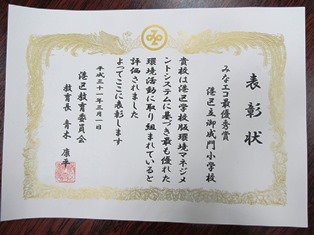 表彰状
みなエコ最優秀賞
港区立御成門小学校
貴校は港区学校版環境マネジメ
ントシステムに基づき最も優れた
環境活動に取り組まれていると
評価されました
よってここに表彰します
平成三十一年三月一日
港区教育委員会
教育長 青木 康平